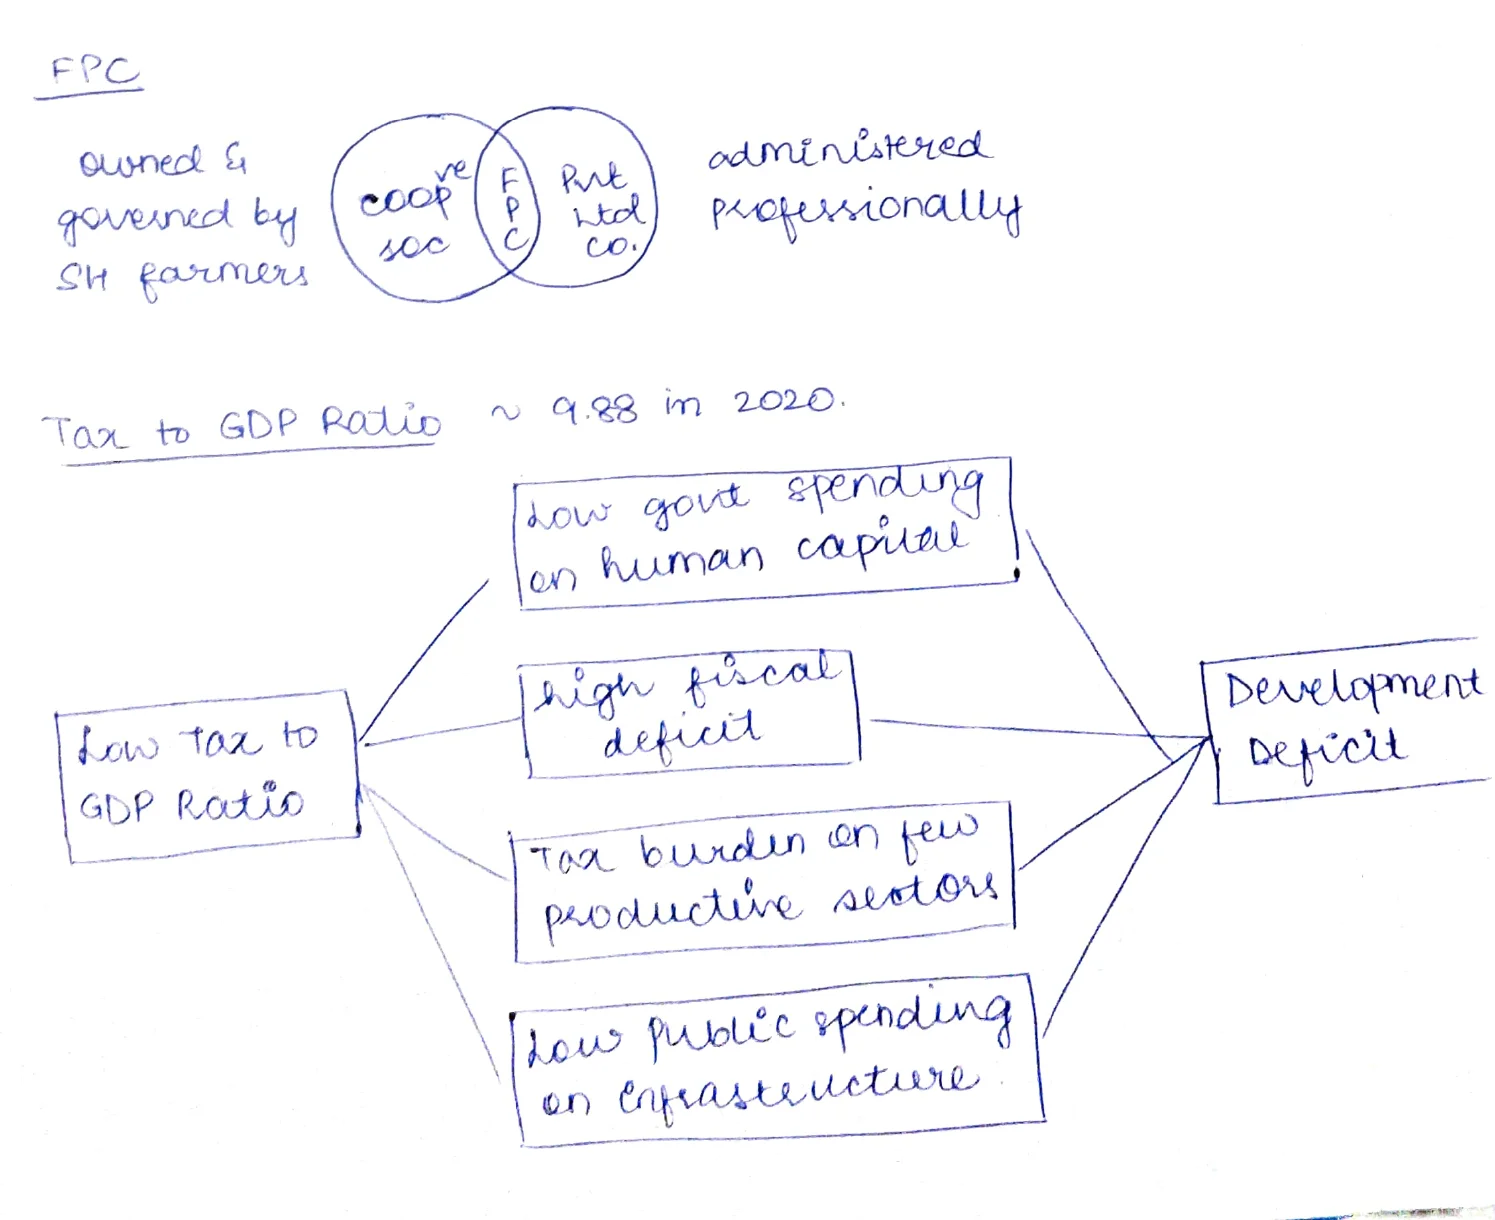 FPC
owned &
governed by
SH farmers
coopve
soc
F
P
C
Pvt
Ltd
co.
administered
professionally
Tax to GDP Ratio ~ 9.88 in 2020.
Low govt spending
on human capital
high fiscal
deficit
Low Tax to
GDP Ratio
Development
Deficit
Tax burden on few
productive sectors
Low Public spending
on infrastructure